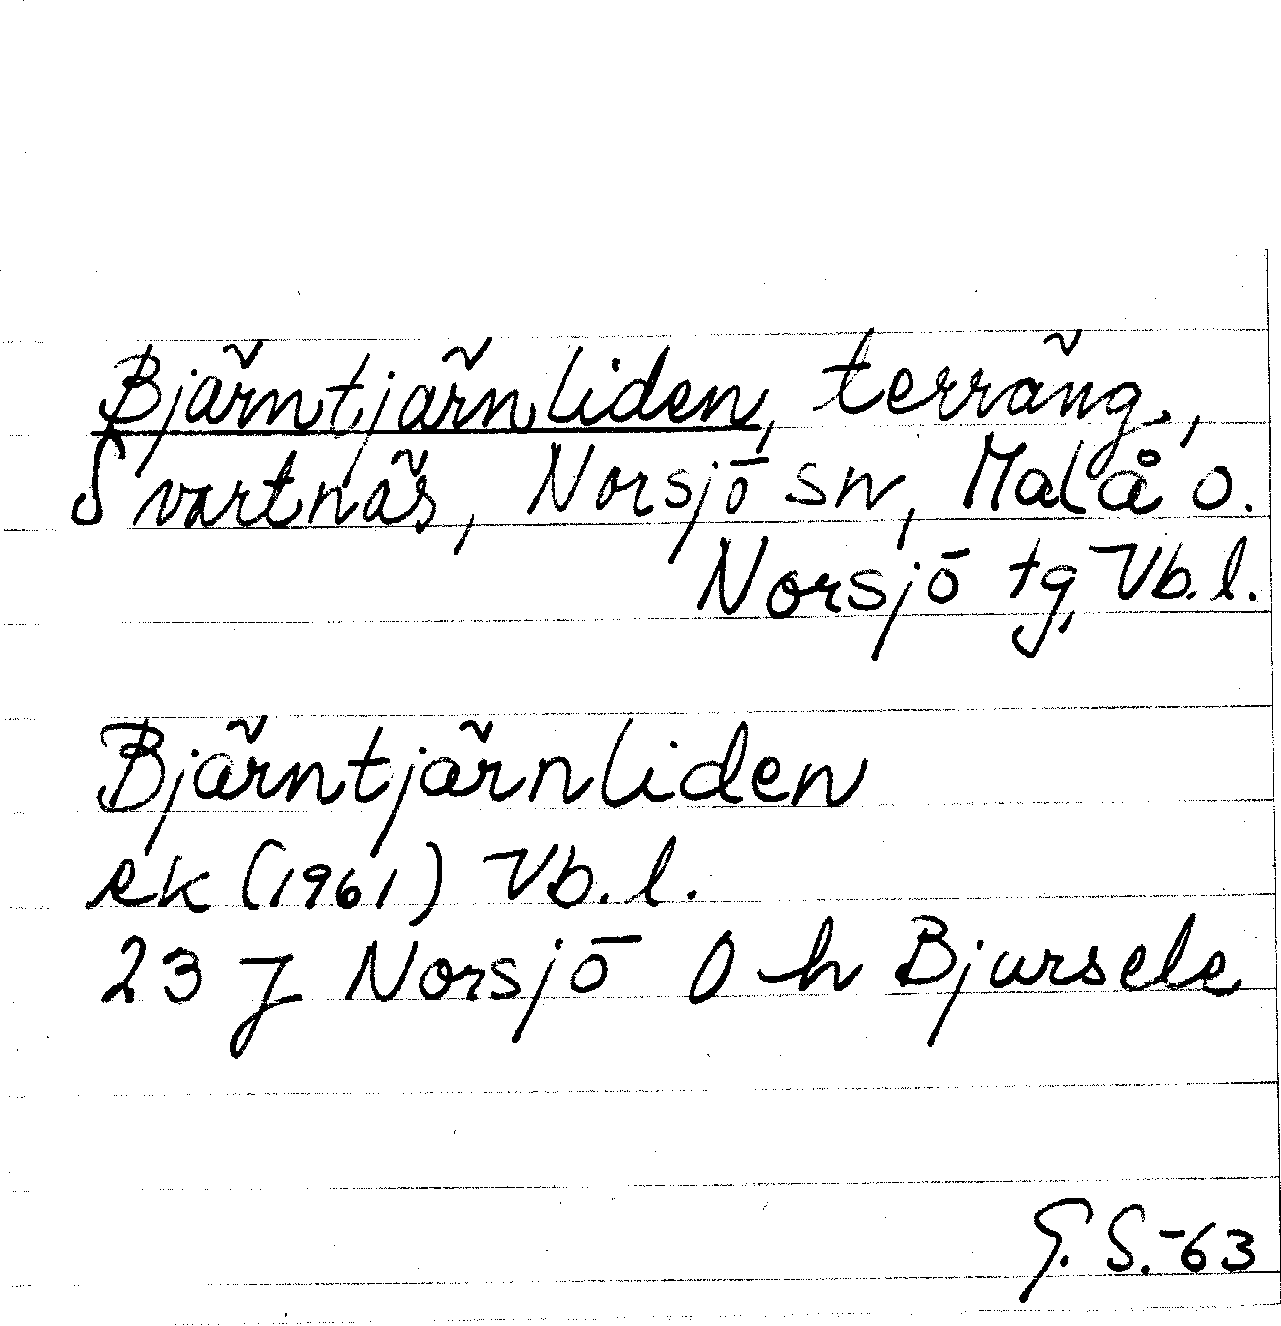 Bjärntjärnliden, terräng.,
Svartnäs, Norsjö sn, Malå o.
Norsjö tg, Vb. l.
Bjärntjärnliden
ek (1961) Vb. l.
23 J Norsjö 0 h Bjursele
G. S.-63